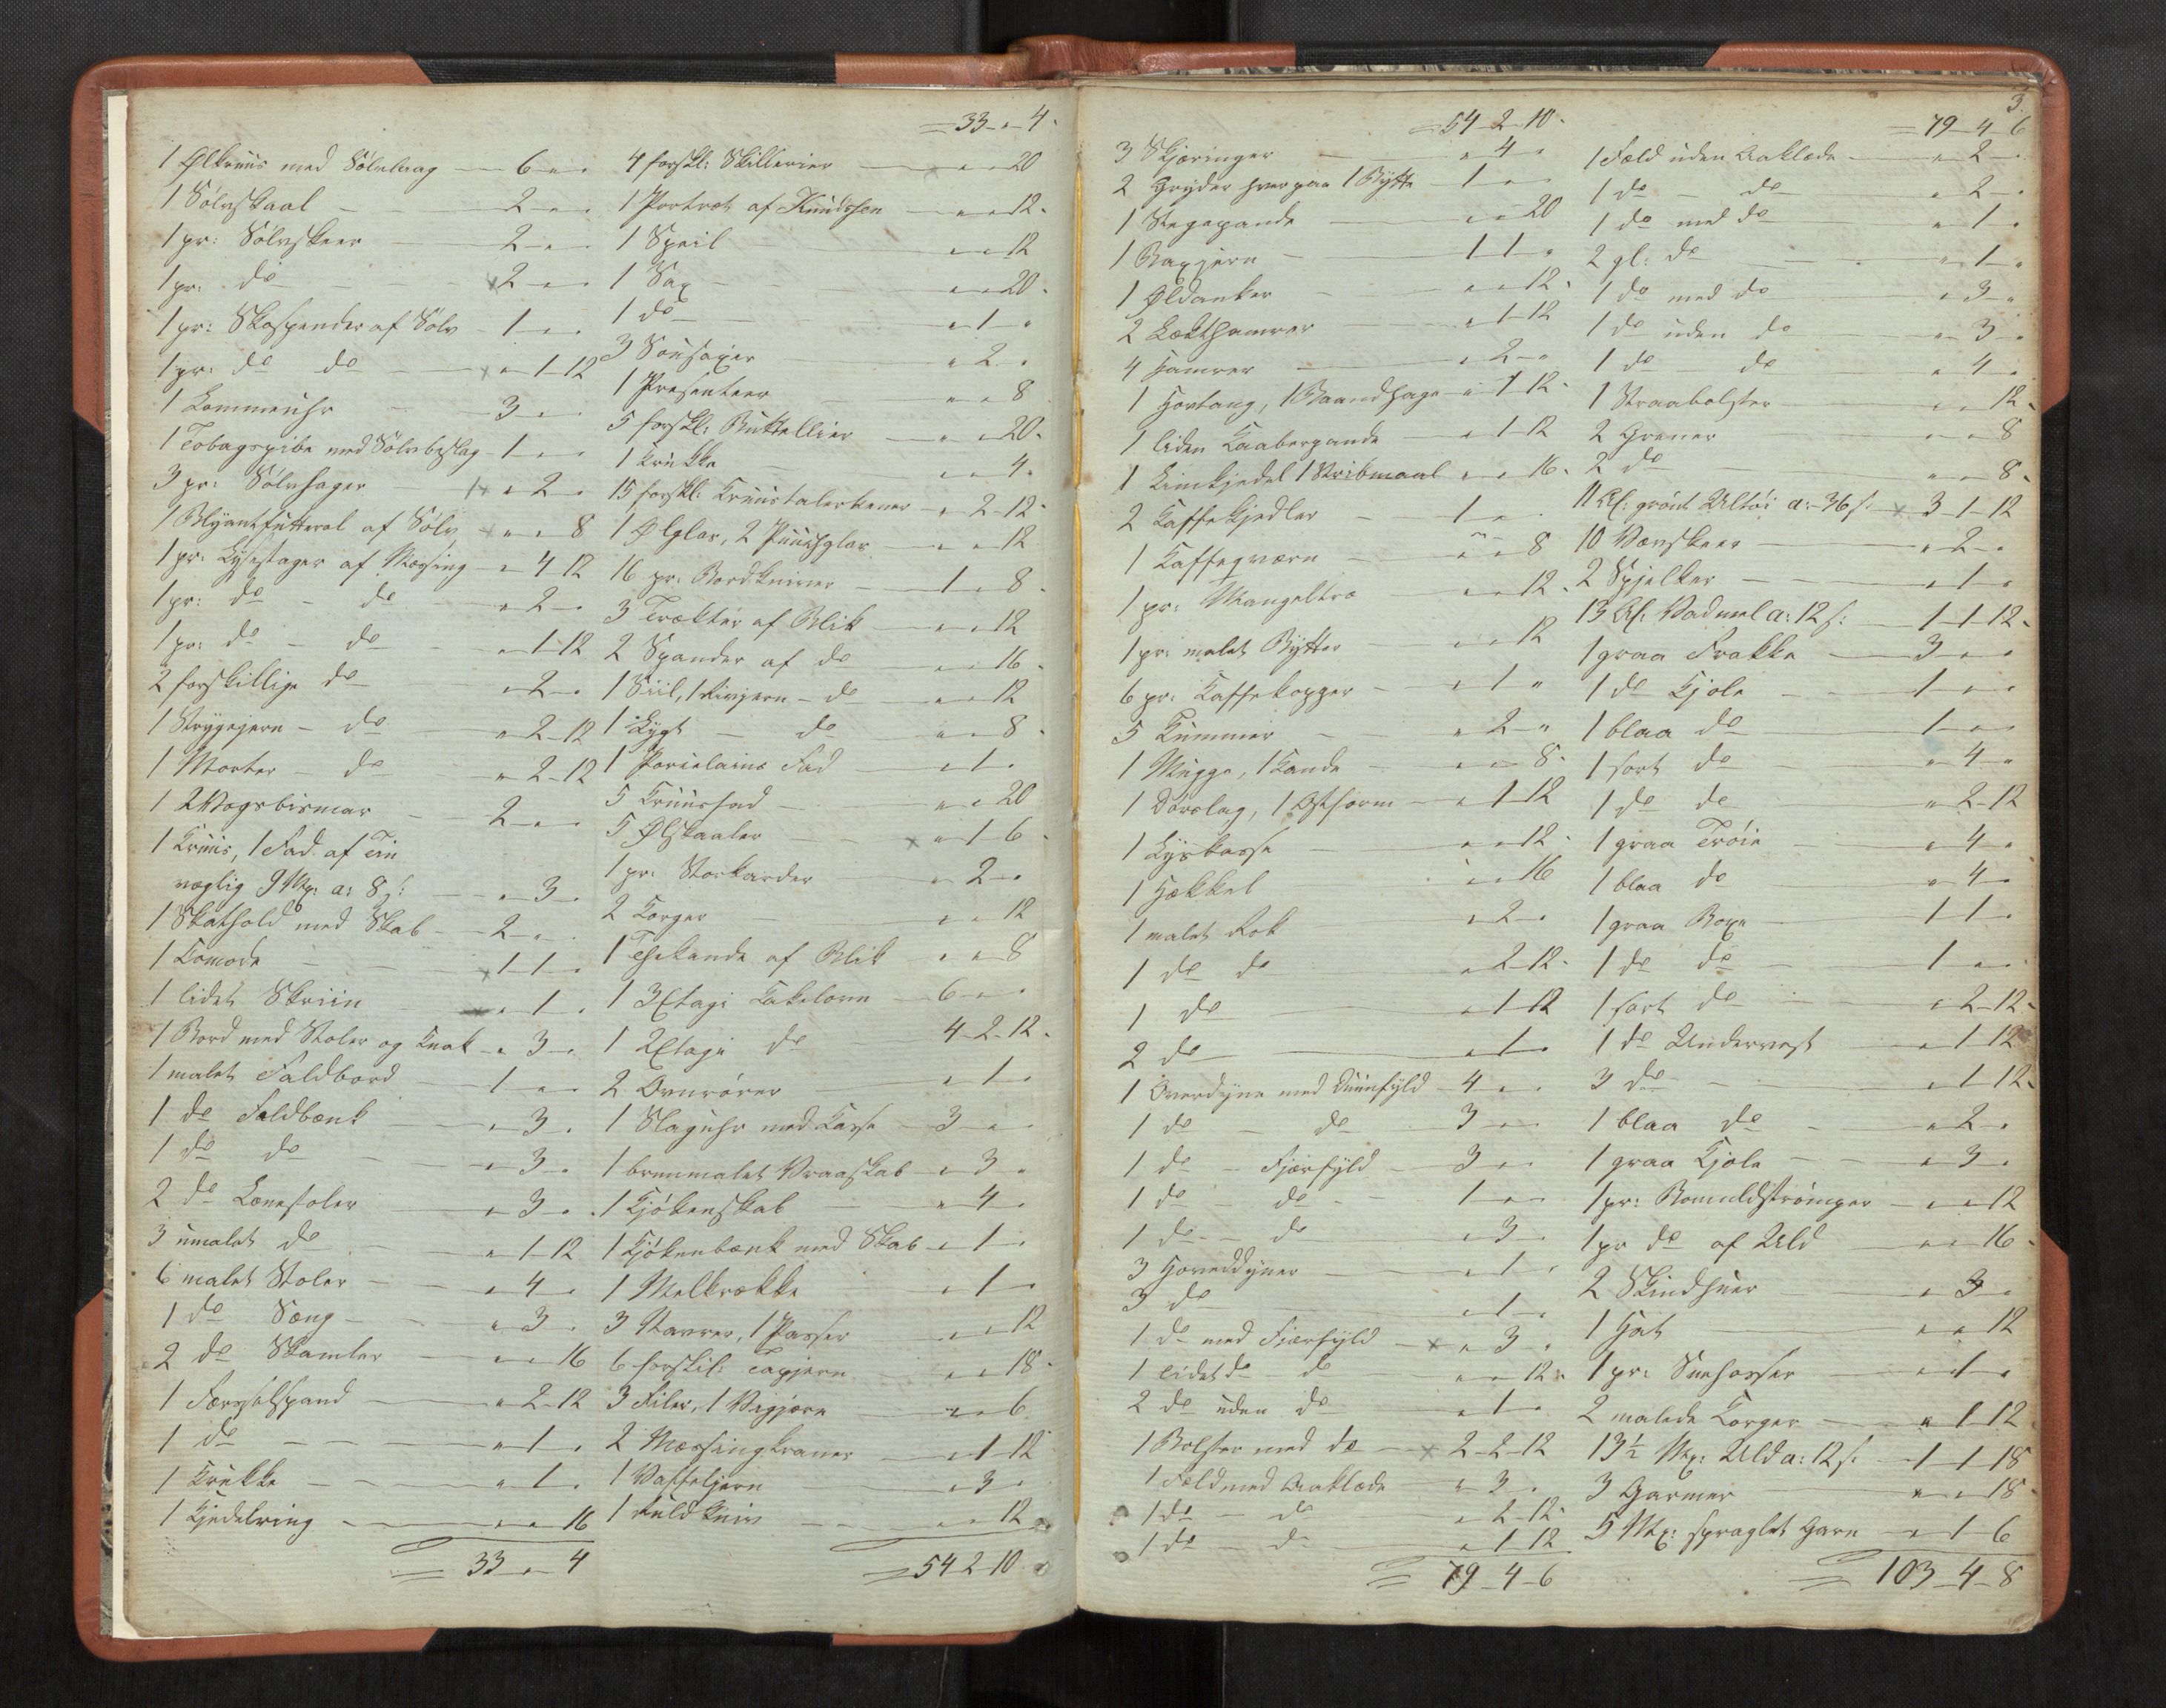 1 Ølkruus med Sölvlaag - 6 " "
1 Sölvskaal - 2 " "
1 pr: Sölvskeer - 2 " "
1 pr: do - 2 " "
1 pr: Skospender af Sölv - 1 " "
1 pr: do do - " 1 12
1 Lommeuhr - 3 " "
1 Tobagspibe med Sölvbeslag - 1 " "
3 pr: Sölvhager - " 2 "
1 Blyantfutteral af Sölv - " " 8
1 pr: Lysestager af Messing - " 4 12
1 pr: do - do - " 2 "
1 pr: do - do - " 1 12
2 forskillige do - " 2 "
1 Strygejern - do - " 2 12
1 Morter - do - " 2 12
1 2 Vogsbismar - 2 " "
1 Kruus, 1 Fad af Tin
væglig 9 Mk: a: 8 s: - " 3 "
1 Skathold med Skab - 2 " "
1 Komode - 1 1 "
1 lidet Skriin - " 1 "
1 Bord med Stoler og Knak - " 3 "
1 malet Faldbord - 1 " "
1 do Faldbænk - " 3 "
1 do do - " 3 "
2 do Lænestoler - " 3 "
3 umalet do - " 1 12
6 malet Stoler - " 4 "
1 do Sæng - " 3 "
2 do Skamler - " " 16
1 Færsselspand - " 2 12
1 do - " 1 "
1 Krukke - " 1 "
1 Kjedelring - " " 16
= 33 " 4
= 33 " 4
4 forskl: Skillerier - " " 20
1 Portræt af Knudssen - " " 12
1 Speil - " " 12
1 Sax - " " 20
1 do - " 1 "
3 Sousaxer - " 2 "
1 Presenteer - " " 8
5 forskl: Buttellier - " " 20
1 Krukke - " " 4
15 forskl: Kruustalerkener - " 2 12
1 Ølglas, 2 Puuchglas - " " 12
16 pr: Bordkniver - 1 " 8
3 Trækter af Blik - " " 12
2 Spander af do - " " 16
1 Siil, 1 Rivjern - do - " " 12
1 Lygt - do - " " 8
1 Porcelains Fad - " 1 "
5 Kruusfad - " " 20
5 Ølskaaler - " 1 6
1 pr: Storkarder - " 2 "
2 Korger - " " 12
1 Thekande af Blik - " " 8
1 3 Etagi Kakelovn - 6 " "
1 2 Etagi do - 4 2 12
2 Ovnrörer - " 1 "
1 Slaguhr med Kasse - 3 " "
1 brunmalet Vraaskab - " 3 "
1 Kjökenskab - " 4 "
1 Kjökenbænk med Skab - " 1 "
1 Melkrække - " 1 "
3 Navrer, 1 Passer - " " 12
6 forskil: Tapjern - " " 18
3 Filer, 1 Vigjern - " " 6
2 Messingkraner - " 1 12
1 Vaffeljern - " 3 "
1 Kniv - " " 12
= 54 2 10
3.
= 54 2 10
3 Skjæringer - " 4 "
2 Gryder hver paa 1 Bytte - 1 " "
1 Stegepande - " " 20
1 Baxjern - 1 1 "
1 Øldanker - " " 12
2 Lækthamrer - " 1 12
4 Hamrer - " 2 "
1 Hovtang, 1 Baandhage - " 1 12
1 liden Kaaberpande - " 1 12
1 Limkjedel 1 Stribmaal - " " 16
2 Kaffekjedler - 1 " "
1 Kaffeqværn - " " 8
1 pr: Mangeltræ - " " 12
1 pr: malet Bytter - " " 12
6 pr: Kaffekopper - " 1 "
5 Kummer - " 2 "
1 Mugge, 1 Kande - " " 8
1 Dörslag, 1 Ostform - " 1 12
1 Lyskasse - " " 12
1 Hækkel - " " 16
1 malet Rok - " 2 "
1 do do - " 2 12
1 do - " 1 12
2 do - " 1 "
1 Overdyne med Duunfyld - 4 " "
1 do - do - 3 " "
1 do - Fjærfyld - 3 " "
1 do - do - 1 " "
1 do - do - " 3 "
3 Hoveddyner - " 1 "
3 do - " 1 "
1 do med Fjærfyld - " 3 "
1 lidet do - do - " " 12
2 do uden do - " 1 "
1 Bolster med do - 2 2 12
1 Fæld med Aaklæde - " 3 "
1 do - do - " 2 12
1 do - do - " 1 12
= 79 4 6
= 79 4 6
1 Fæld uden Aaklæde - " 2 "
1 do - do - " 2 "
1 do med do - " 1 "
2 gl: do - " 1 "
1 do med do - " 3 "
1 do uden do - " 3 "
1 do do - " 4 "
1 Straabolster - " " 12
2 Grener - " " 8
2 do - " " 8
11 Al: grönt Ultöi a: 36 s: - 3 1 12
10 Vævskeer - " 2 "
2 Spjelker - " 1 "
13 Al: Vadmel a: 12 s: - 1 1 12
1 graa Frakke - 3 " "
1 do Kjole - 1 " "
1 blaa do - 1 " "
1 sort do - " 4 "
1 do do - " 2 12
1 graa Tröie - " 4 "
1 blaa do - " 4 "
1 graa Boxe - 1 1 "
1 do do - 1 " "
1 sort do - " 2 12
1 do Undervest - " 1 12
3 do - " 1 12
1 blaa do - " 2 "
1 graa Kjole - " 3 "
1 pr: Bomuldströmper - " " 12
1 pr do af Uld - " " 16
2 Skindhuer - " 3 "
1 Hat - " " 12
1 pr: Sneesosser - " 1 "
2 malede Korger - " 1 12
13 1/2 Mk: Uld a: 12 s: - 1 1 18
3 Garmer - " " 18
5 Mk: spraglet Garn - " 1 6
= 103 4 8